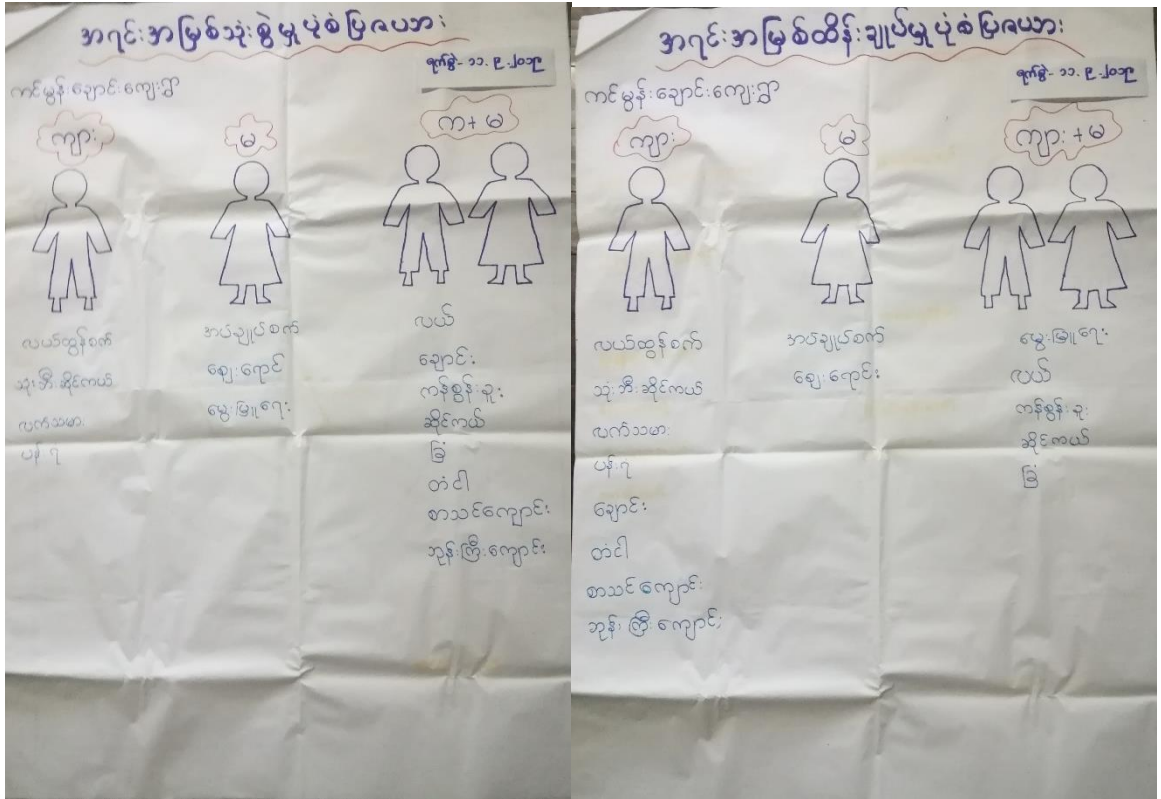 အရင်းအမြစ်သုံးစွဲမှုပုံစံပြဇယား
ရက်စွဲ- ၁၁.၉.၂၀၁၉
ကင်မွန်းချောင်းကျေးရွာ
ကျား
မ
က + မ
လယ်ထွန်စက်
သုံးဘီးဆိုင်ကယ်
လက်သမား
ပန်းရံ
အပ်ချုပ်စက်
ဈေးရောင်း
မွေးမြူရေး
လယ်
ချောင်း
ကန်စွန်းခူး
ဆိုင်ကယ်
ခြံ
တံငါ
စာသင်ကျောင်း
ဘုန်းကြီးကျောင်း
အရင်းအမြစ်ထိန်းချုပ်မှုပုံစံပြဇယား
ရက်စွဲ- ၁၁.၉.၂၀၁၉
ကင်မွန်းချောင်းကျေးရွာ
ကျား
မ
ကျား + မ
လယ်ထွန်စက်
သုံးဘီးဆိုင်ကယ်
လက်သမား
ပန်းရံ
ချောင်း
တံငါ
စာသင်ကျောင်း
ဘုန်းကြီးကျောင်း
အပ်ချုပ်စက်
ဈေးရောင်း
မွေးမြူရေး
လယ်
ကန်စွန်းခူး
ဆိုင်ကယ်
ခြံ